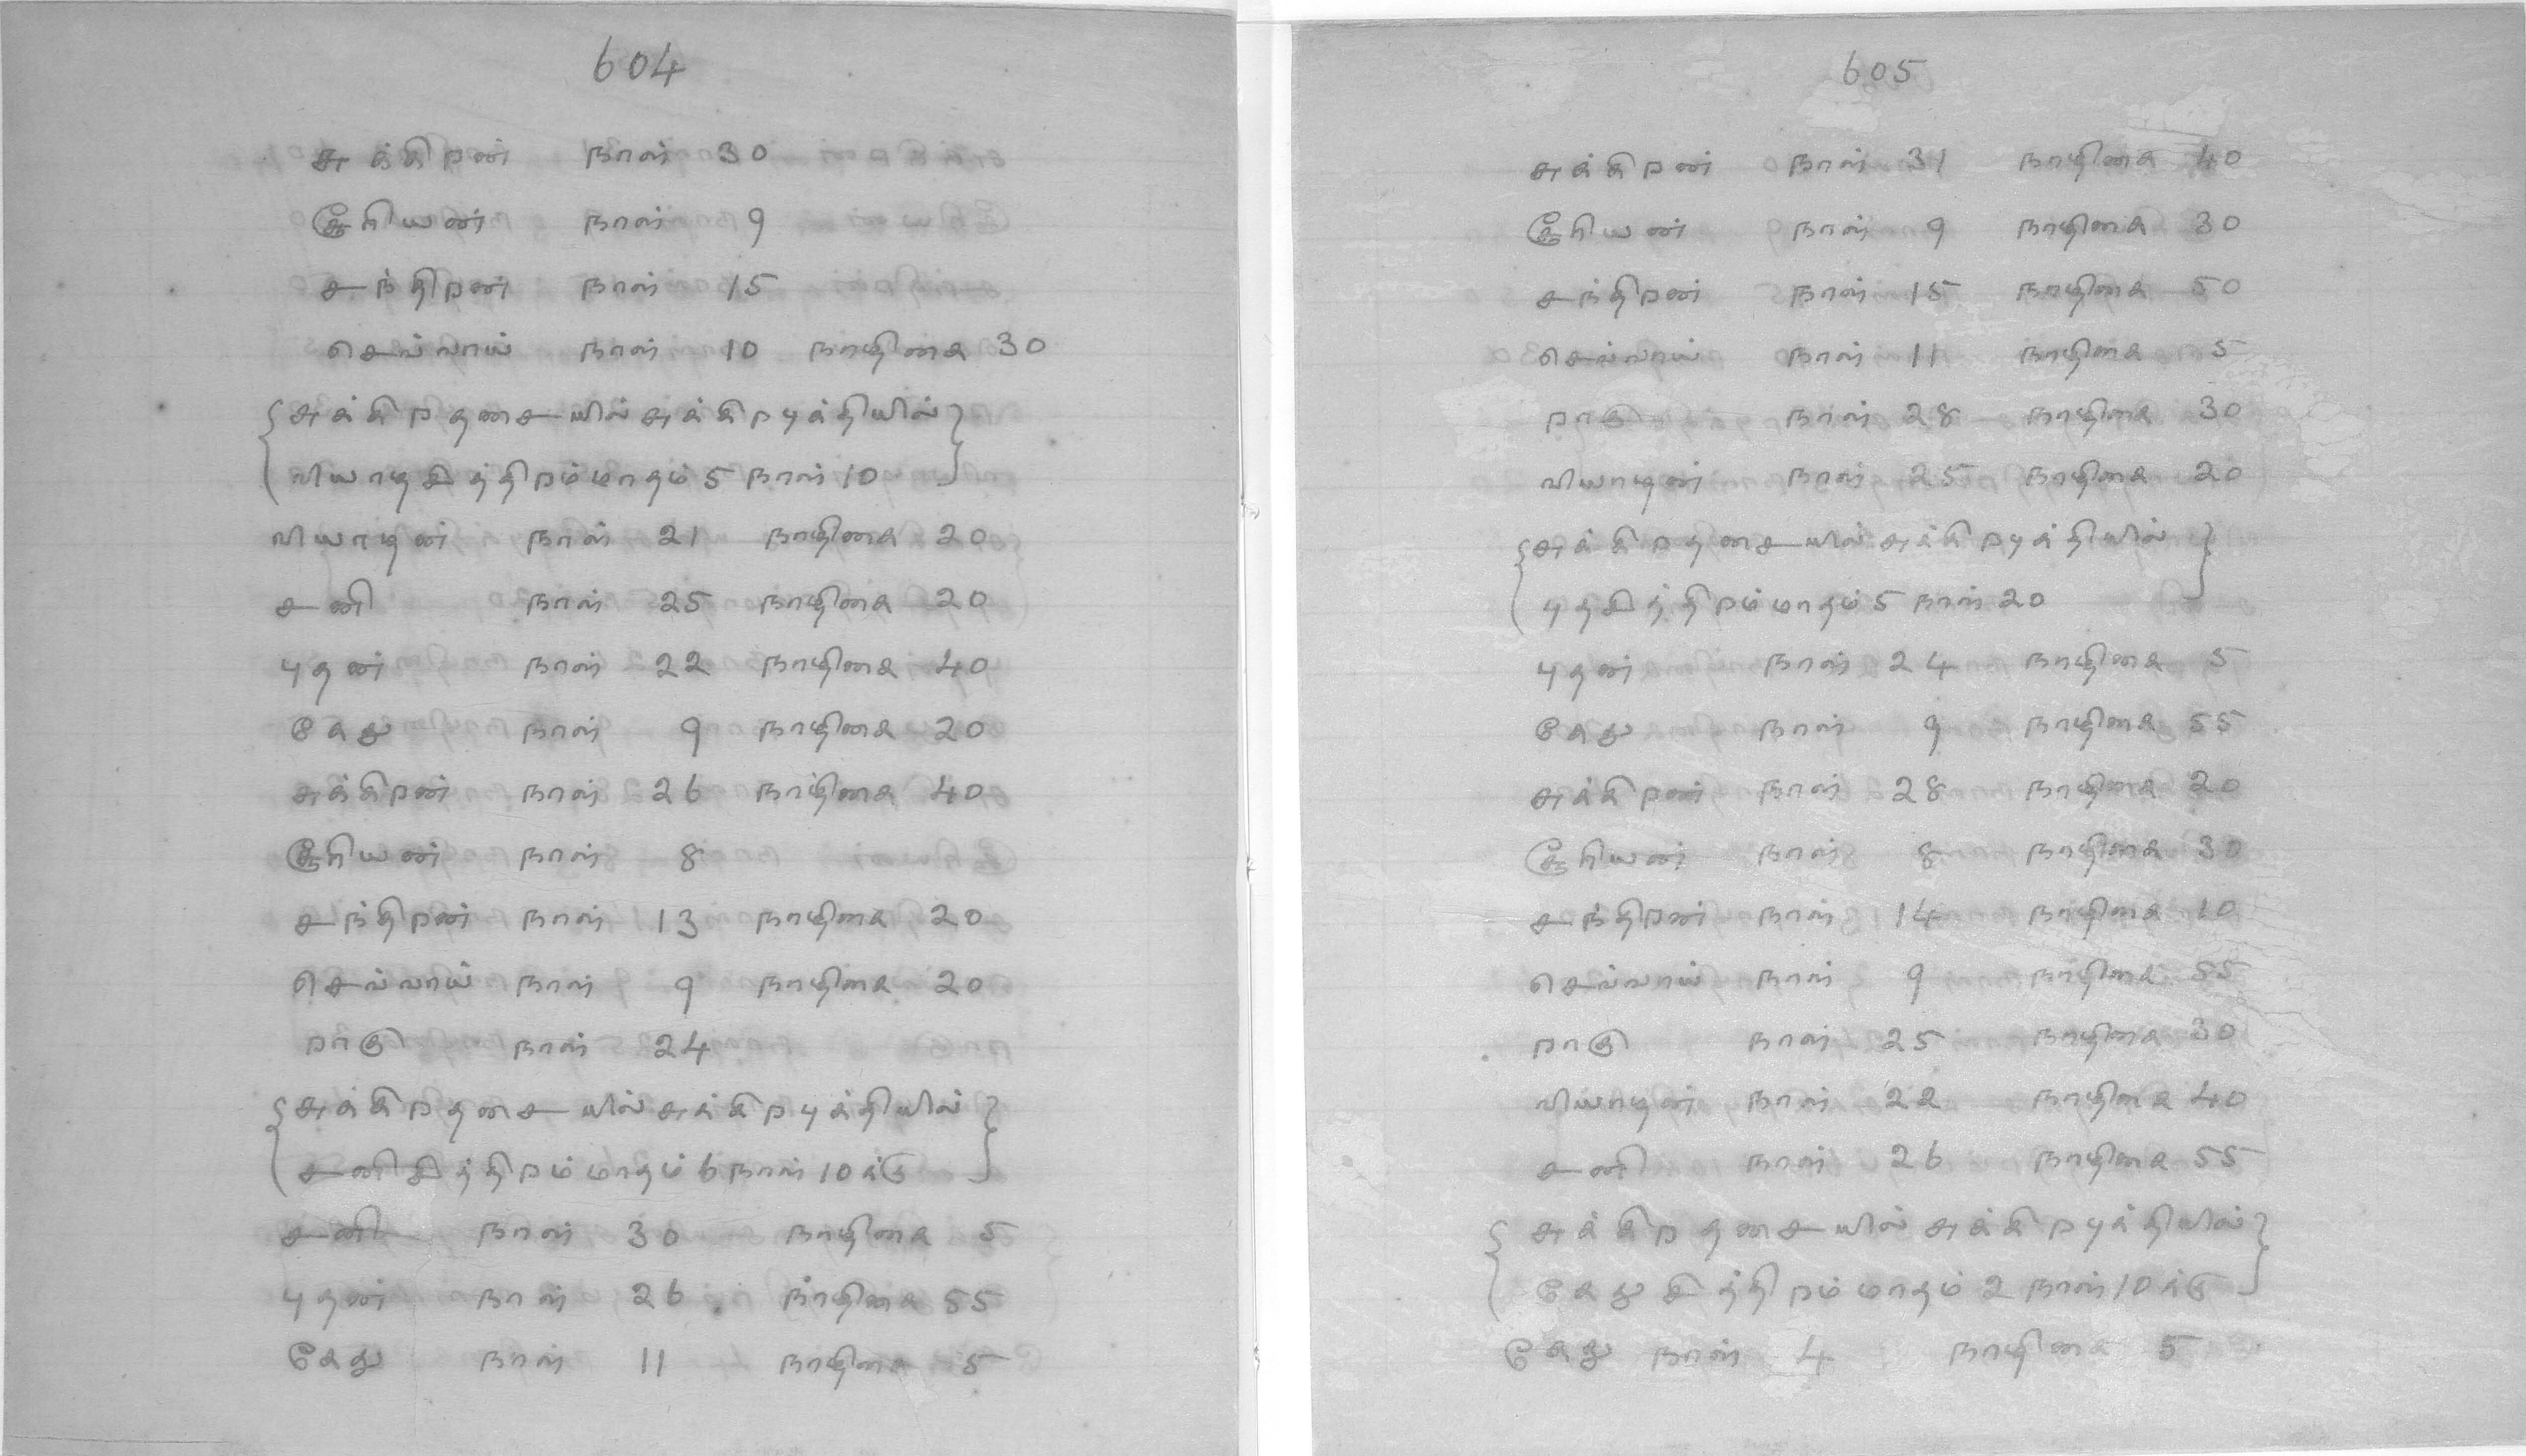 604
சுக்கிரன் நாள் 30
சூரியன் நாள் 9
சந்திரன் நாள் 15
செவ்வாய் நாள் 10 நாழிகை 30
{சுக்கிர தசையில் சுக்கிர புக்தியில்}
வியாழ சித்திரம் மாதம் 5 நாள் 10
வியாழன் நாள் 21 நாழிகை 20
சனி நாள் 25 நாழிகை 20
புதன் நாள் 22 நாழிகை 40
கேது நாள் 9 நாழிகை 20
சுக்கிரன் நாள் 26 நாழிகை 40
சூரியன் நாள் 8
சந்திரன் நாள் 13 நாழிகை 20
செவ்வாய் நாள் 9 நாழிகை 20
ராகு நாள் 24
{சுக்கிர தசையில் சுக்கிர புக்தியில்}
சனி சித்திரம் மாதம் 6 நாள் 10 க்கு
சனி நாள் 30 நாழிகை 5
புதன் நாள் 26 நாழிகை 55
கேது நாள் 11 நாழிகை 5
605
சுக்கிரன் நாள் 31 நாழிகை 40
சூரியன் நாள் 9 நாழிகை 30
சந்திரன் நாள் 15 நாழிகை 50
செவ்வாய் நாள் 11 நாழிகை 5
ராகு நாள் 28 நாழிகை 30
வியாழன் நாள் 25 நாழிகை 20
{சுக்கிர தசையில் சுக்கிர புக்தியில்}
புத சித்திரம் மாதம் 5 நாள் 20
புதன் நாள் 24 நாழிகை 5
கேது நாள் 9 நாழிகை 55
சுக்கிரன் நாள் 28 நாழிகை 20
சூரியன் நாள் 8 நாழிகை 30
சந்திரன் நாள் 14 நாழிகை 10
செவ்வாய் நாள் 9 நாழிகை 55
ராகு நாள் 25 நாழிகை 30
வியாழன் நாள் 22 நாழிகை 40
சனி நாள் 26 நாழிகை 55
{சுக்கிர தசையில் சுக்கிர புக்தியில்}
கேது சித்திரம் மாதம் 2 நாள் 10 க்கு
கேது நாள் 4 நாழிகை 5